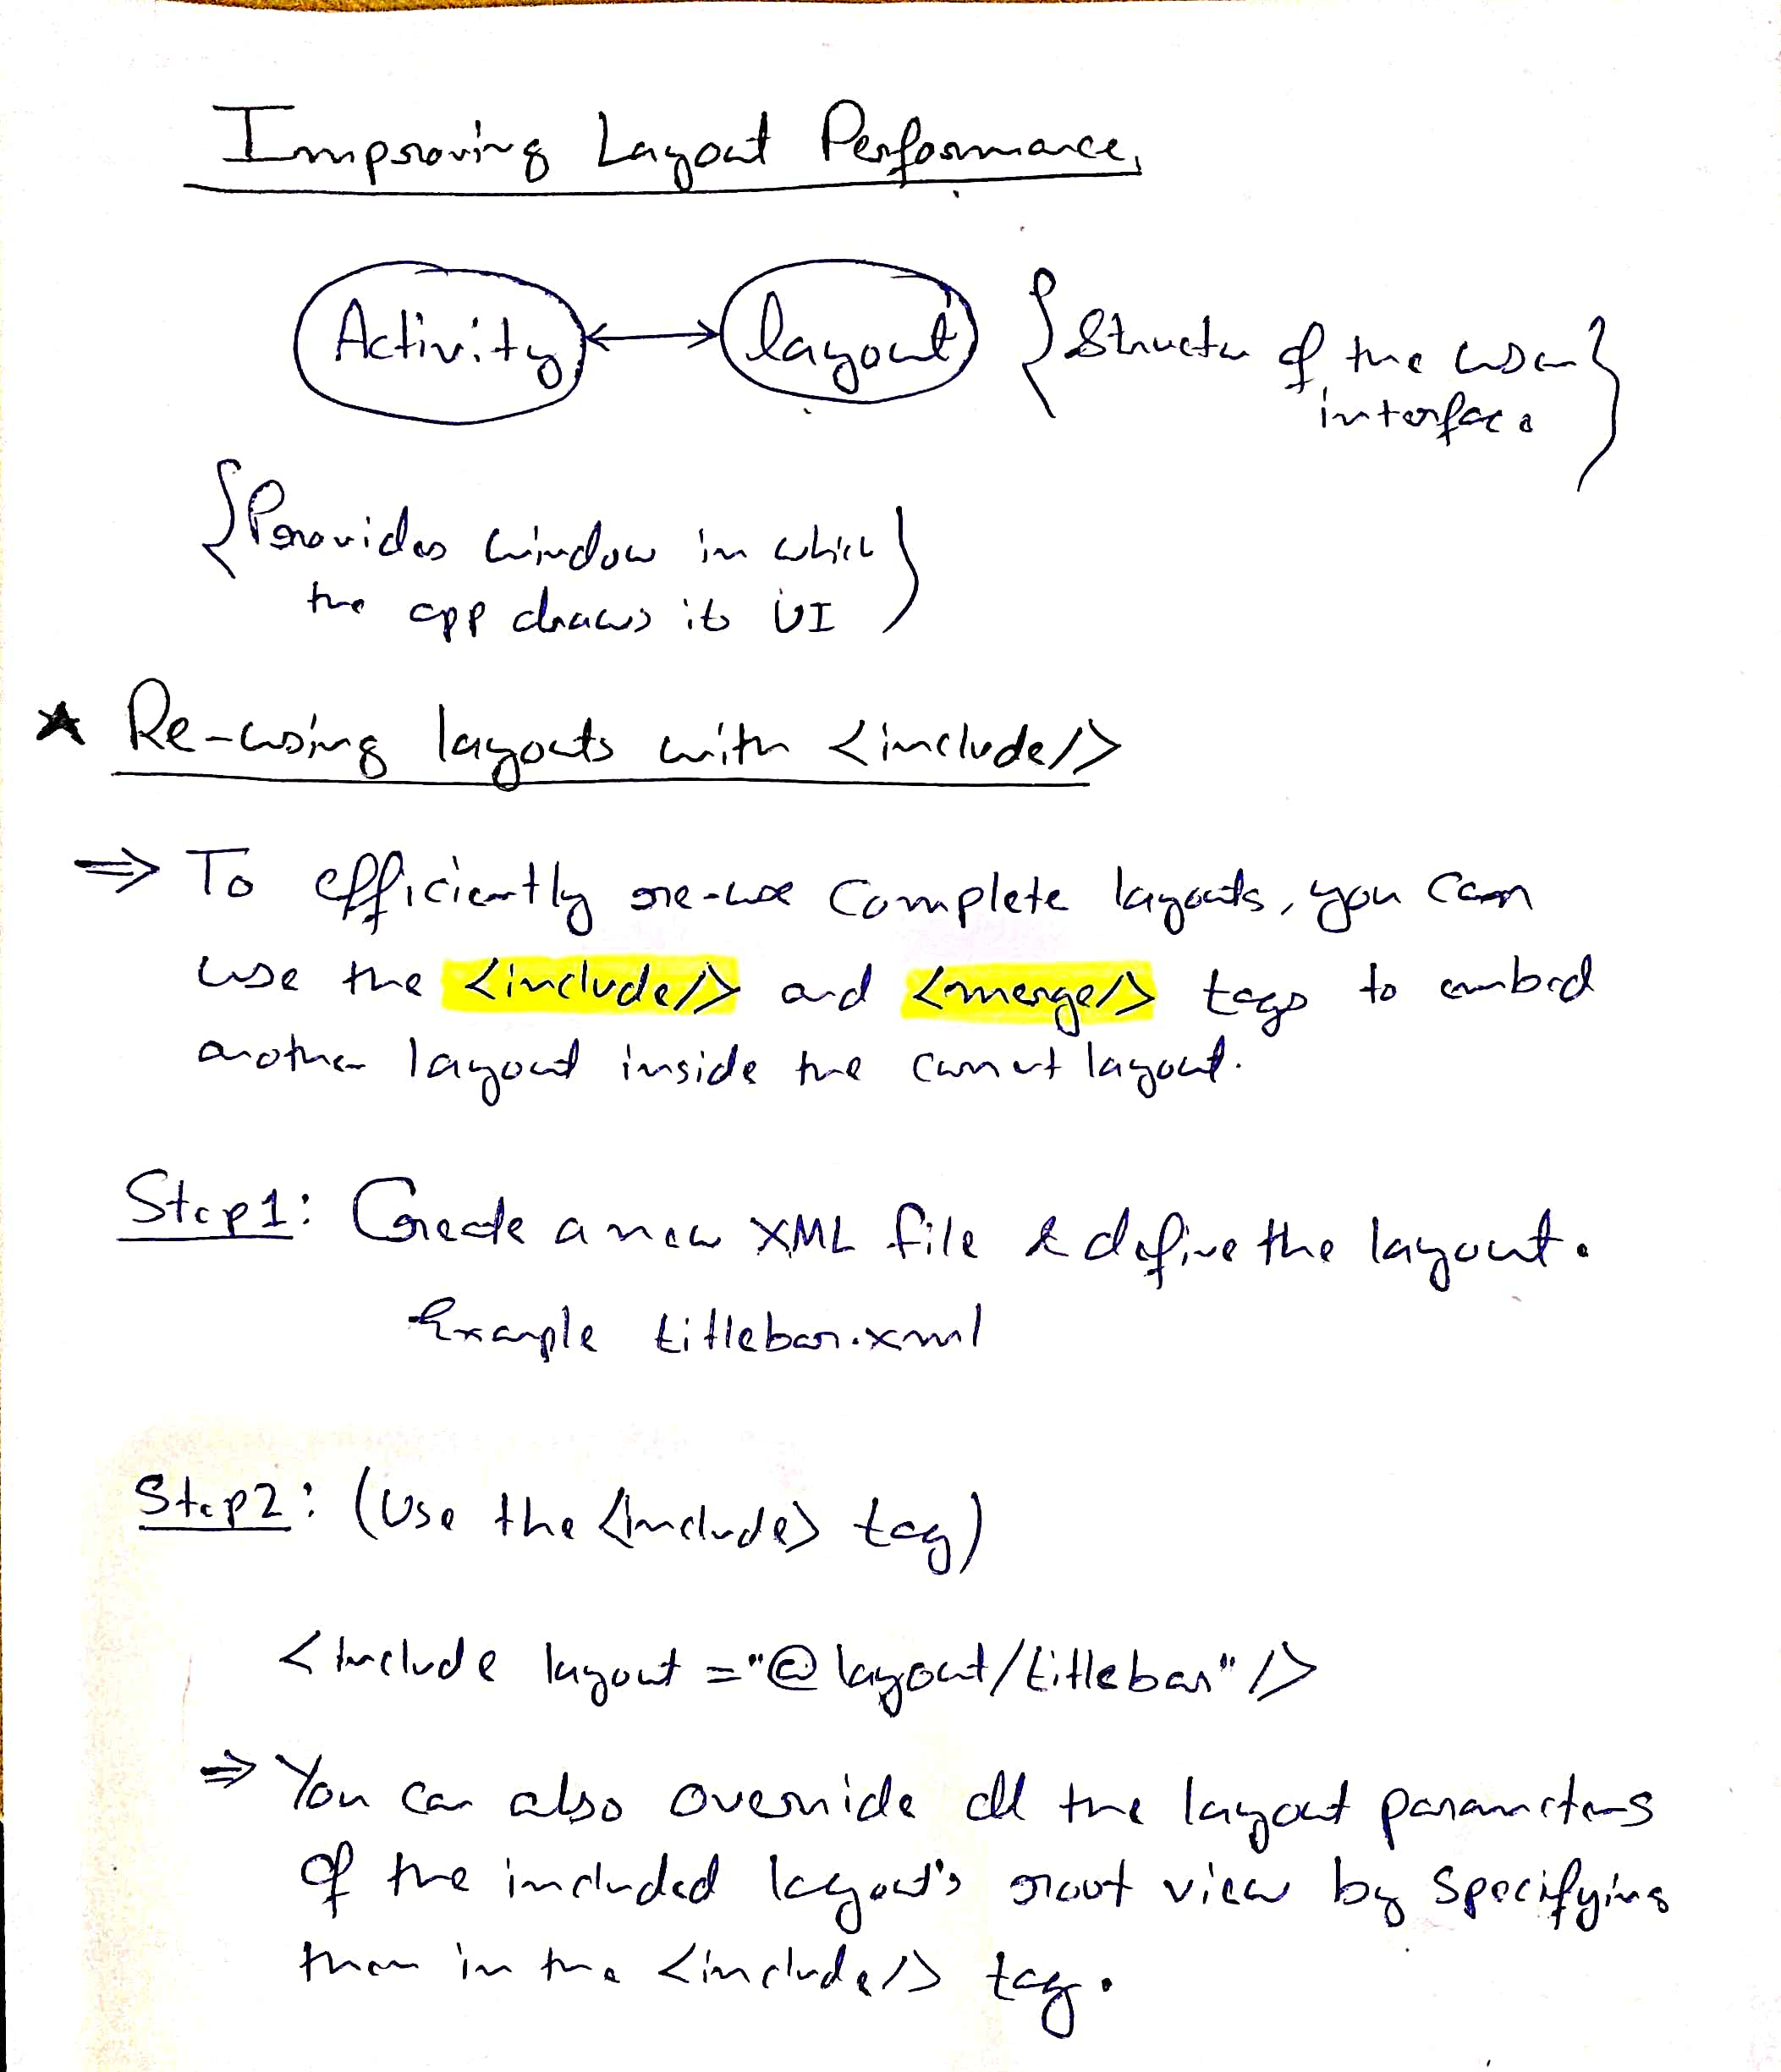 Improving Layout Performance,
Activity ↔ layout { Structure of the user
interface }
{ Provides window in which
the app draws its UI }
★ Re-using layouts with <include/>
⇒ To efficiently re-use complete layouts, you can
use the <include/> and <merge/> tags to embed
another layout inside the current layout.
Step1: Create a new XML file & define the layout.
Example titlebar.xml
Step2: (Use the <Include> tag)
<Include layout ="@layout/titlebar"/>
⇒ You can also override all the layout parameters
of the included layout's root view by specifying
them in the <include/> tag.